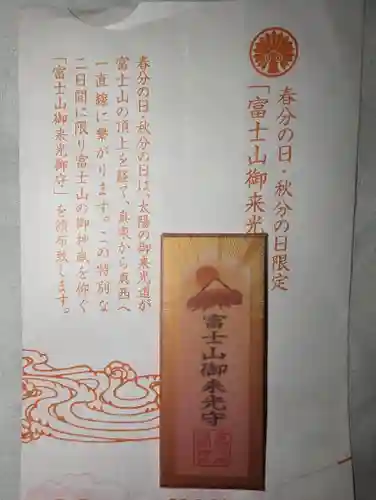 春分の日・秋分の日限定
「富士山御来光
春分の日・秋分の日は、太陽の御来光道が
富士山の頂上を経て、真東から真西へ
一直線に繋がります。この特別な
二日間に限り富士山の御神威を仰ぐ
「富士山御来光御守」を頒布致します。
富士山御来光守